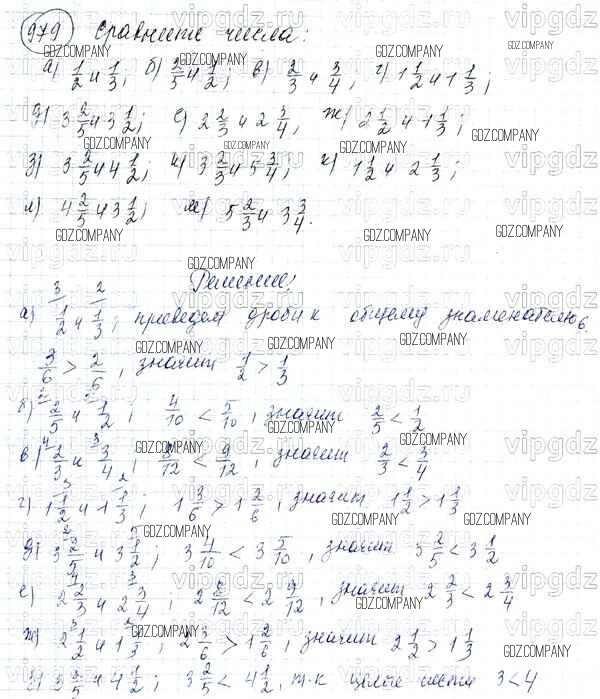 979 Сравните числа:
а) 1/2 и 1/3; б) 2/5 и 1/2; в) 2/3 и 3/4; г) 1 1/2 и 1 1/3;
д) 3 2/5 и 3 1/2; е) 2 2/3 и 2 3/4; ж) 2 1/2 и 1 1/3;
з) 3 2/5 и 4 1/2; и) 3 2/3 и 5 3/4; к) 1 1/2 и 2 1/3;
л) 4 2/5 и 3 1/2; м) 5 2/3 и 3 3/4.
Решение:
а) 1/2 и 1/3; приведем дроби к общему знаменателю 6.
3/6 > 2/6, значит 1/2 > 1/3
б) 2/5 и 1/2; 4/10 < 5/10, значит 2/5 < 1/2
в) 2/3 и 3/4; 8/12 < 9/12, значит 2/3 < 3/4
г) 1 1/2 и 1 1/3; 1 3/6 > 1 2/6, значит 1 1/2 > 1 1/3
д) 3 2/5 и 3 1/2; 3 4/10 < 3 5/10, значит 3 2/5 < 3 1/2
е) 2 2/3 и 2 3/4; 2 8/12 < 2 9/12, значит 2 2/3 < 2 3/4
ж) 2 1/2 и 1 1/3; 2 3/6 > 1 2/6, значит 2 1/2 > 1 1/3
з) 3 2/5 и 4 1/2; 3 2/5 < 4 1/2, т.к целые части 3 < 4